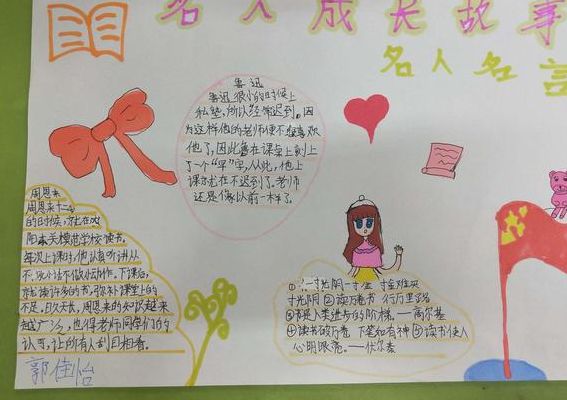 名人成长故事
名人名言
鲁迅
鲁迅很小的时候上
私塾,所以经常迟到。因
为这样他的老师便不在喜欢
他了,因此鲁在课桌上刻上
了一个“早”字,从此,他上
课就在不迟到了。老师
还是像以前一样了。
周恩来
周恩来十二
的时候,就在
阳东关模范学校读书。
每次上课时,他认真听讲从
不说小话不做小动作。下课后,
就读许多的书,弥补课堂上的
不足。日久天长,周恩来的知识越来
越广泛,也得老师同学们的的
认可,让所有人刮目相看。
郭佳怡
①一寸光阴一寸金 寸金难买
寸光阴②读万卷书 行万里路
③书是人类进步的阶梯。——高尔基
④读书破万卷 下笔如有神⑤读书使人
心明眼亮。——伏尔泰